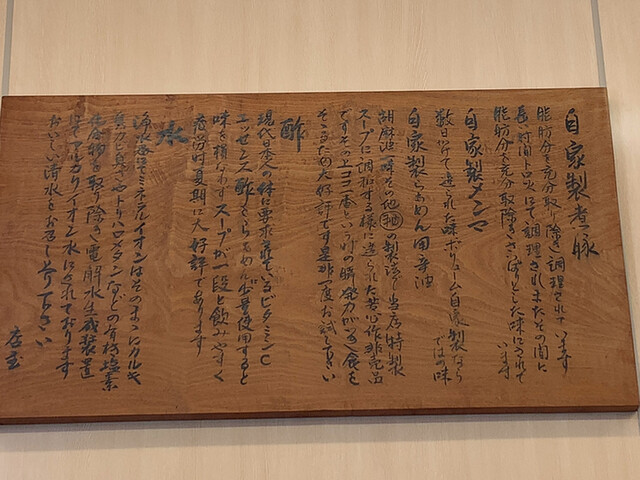 自家製煮豚
脂肪分を充分取り除き調理されています
長時間トロ火にて調理されまたその間に
脂肪分を充分取除きさっぱりとした味にされて
います
自家製メンマ
数日かけて造られた味ボリューム自家製なら
ではの味
自家製らぁめん用辛油
胡麻油、一味その他㊙の製法で当店特製
スープに調和する様に造られた苦心作非売品
です
そるため大好評です是非一度お試し下さい
酢
現代日本人の体に要求されているビタミンC
エッセンス酢でらぁめんに少量使用すると
味を損なわずスープが一段と飲みやすく
夏期に大好評であります
水
浄水器にてミネラルイオンはそのままにカルキ
トリハロメタンなどの有機塩素
化合物を取り除き電解水生成装置
にてアルカリイオン水にされております
おいしい清水をお召し上り下さい
店主